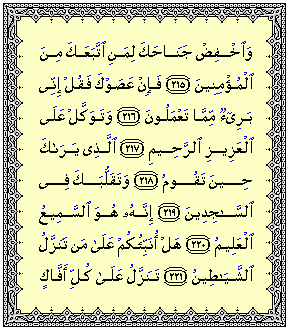 وَٱخۡفِضۡ جَنَاحَكَ لِمَنِ ٱتَّبَعَكَ مِنَ
ٱلۡمُؤۡمِنِينَ ٢١٥ فَإِنۡ عَصَوۡكَ فَقُلۡ إِنِّى
بَرِىٓءٌ مِّمَّا تَعۡمَلُونَ ٢١٦ وَتَوَكَّلۡ عَلَى
ٱلۡعَزِيزِ ٱلرَّحِيمِ ٢١٧ ٱلَّذِى يَرَىٰكَ
حِينَ تَقُومُ ٢١٨ وَتَقَلُّبَكَ فِى
ٱلسَّـٰجِدِينَ ٢١٩ إِنَّهُۥ هُوَ ٱلسَّمِيعُ
ٱلۡعَلِيمُ ٢٢٠ هَلۡ أُنَبِّئُكُمۡ عَلَىٰ مَن تَنَزَّلُ
ٱلشَّيَـٰطِينُ ٢٢١ تَنَزَّلُ عَلَىٰ كُلِّ أَفَّاكٍ